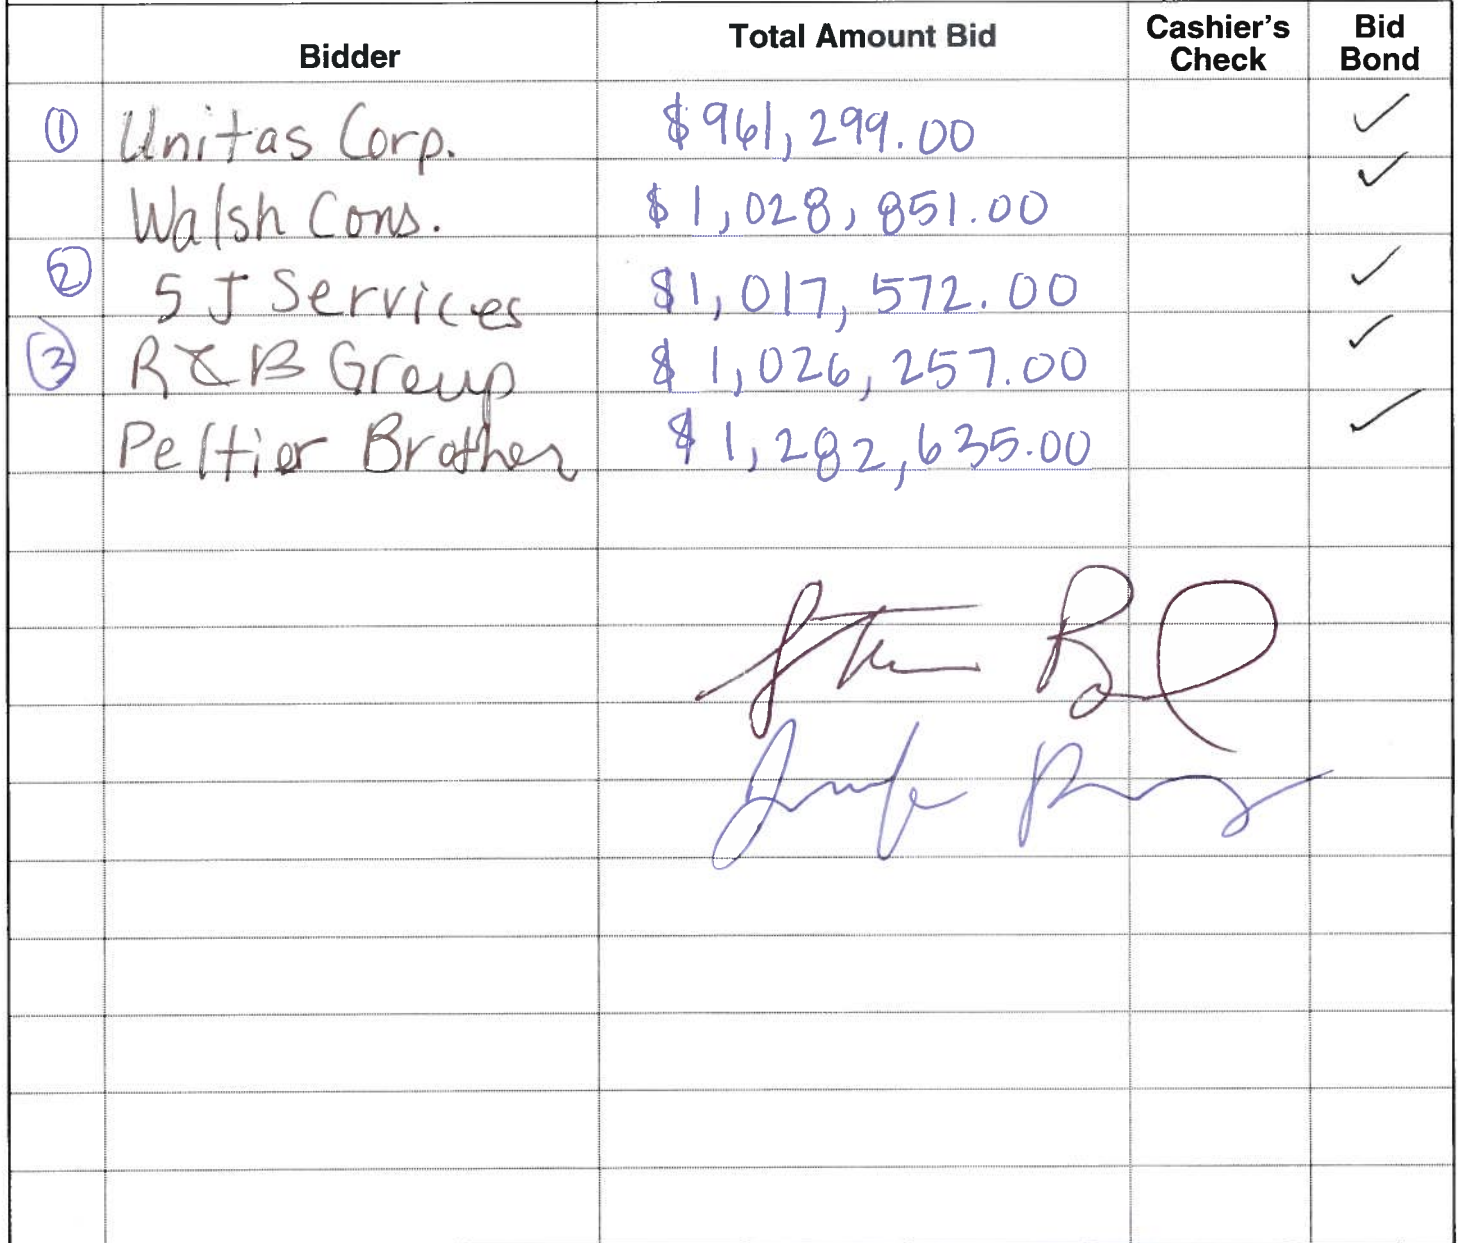 Bidder Total Amount Bid Cashier's Check Bid Bond
① Unitas Corp. $961,299.00 ✓
Walsh Cons. $1,028,851.00 ✓
② SJ Services $1,017,572.00 ✓
③ R&B Group $1,026,257.00 ✓
Peltier Brother $1,282,635.00 ✓